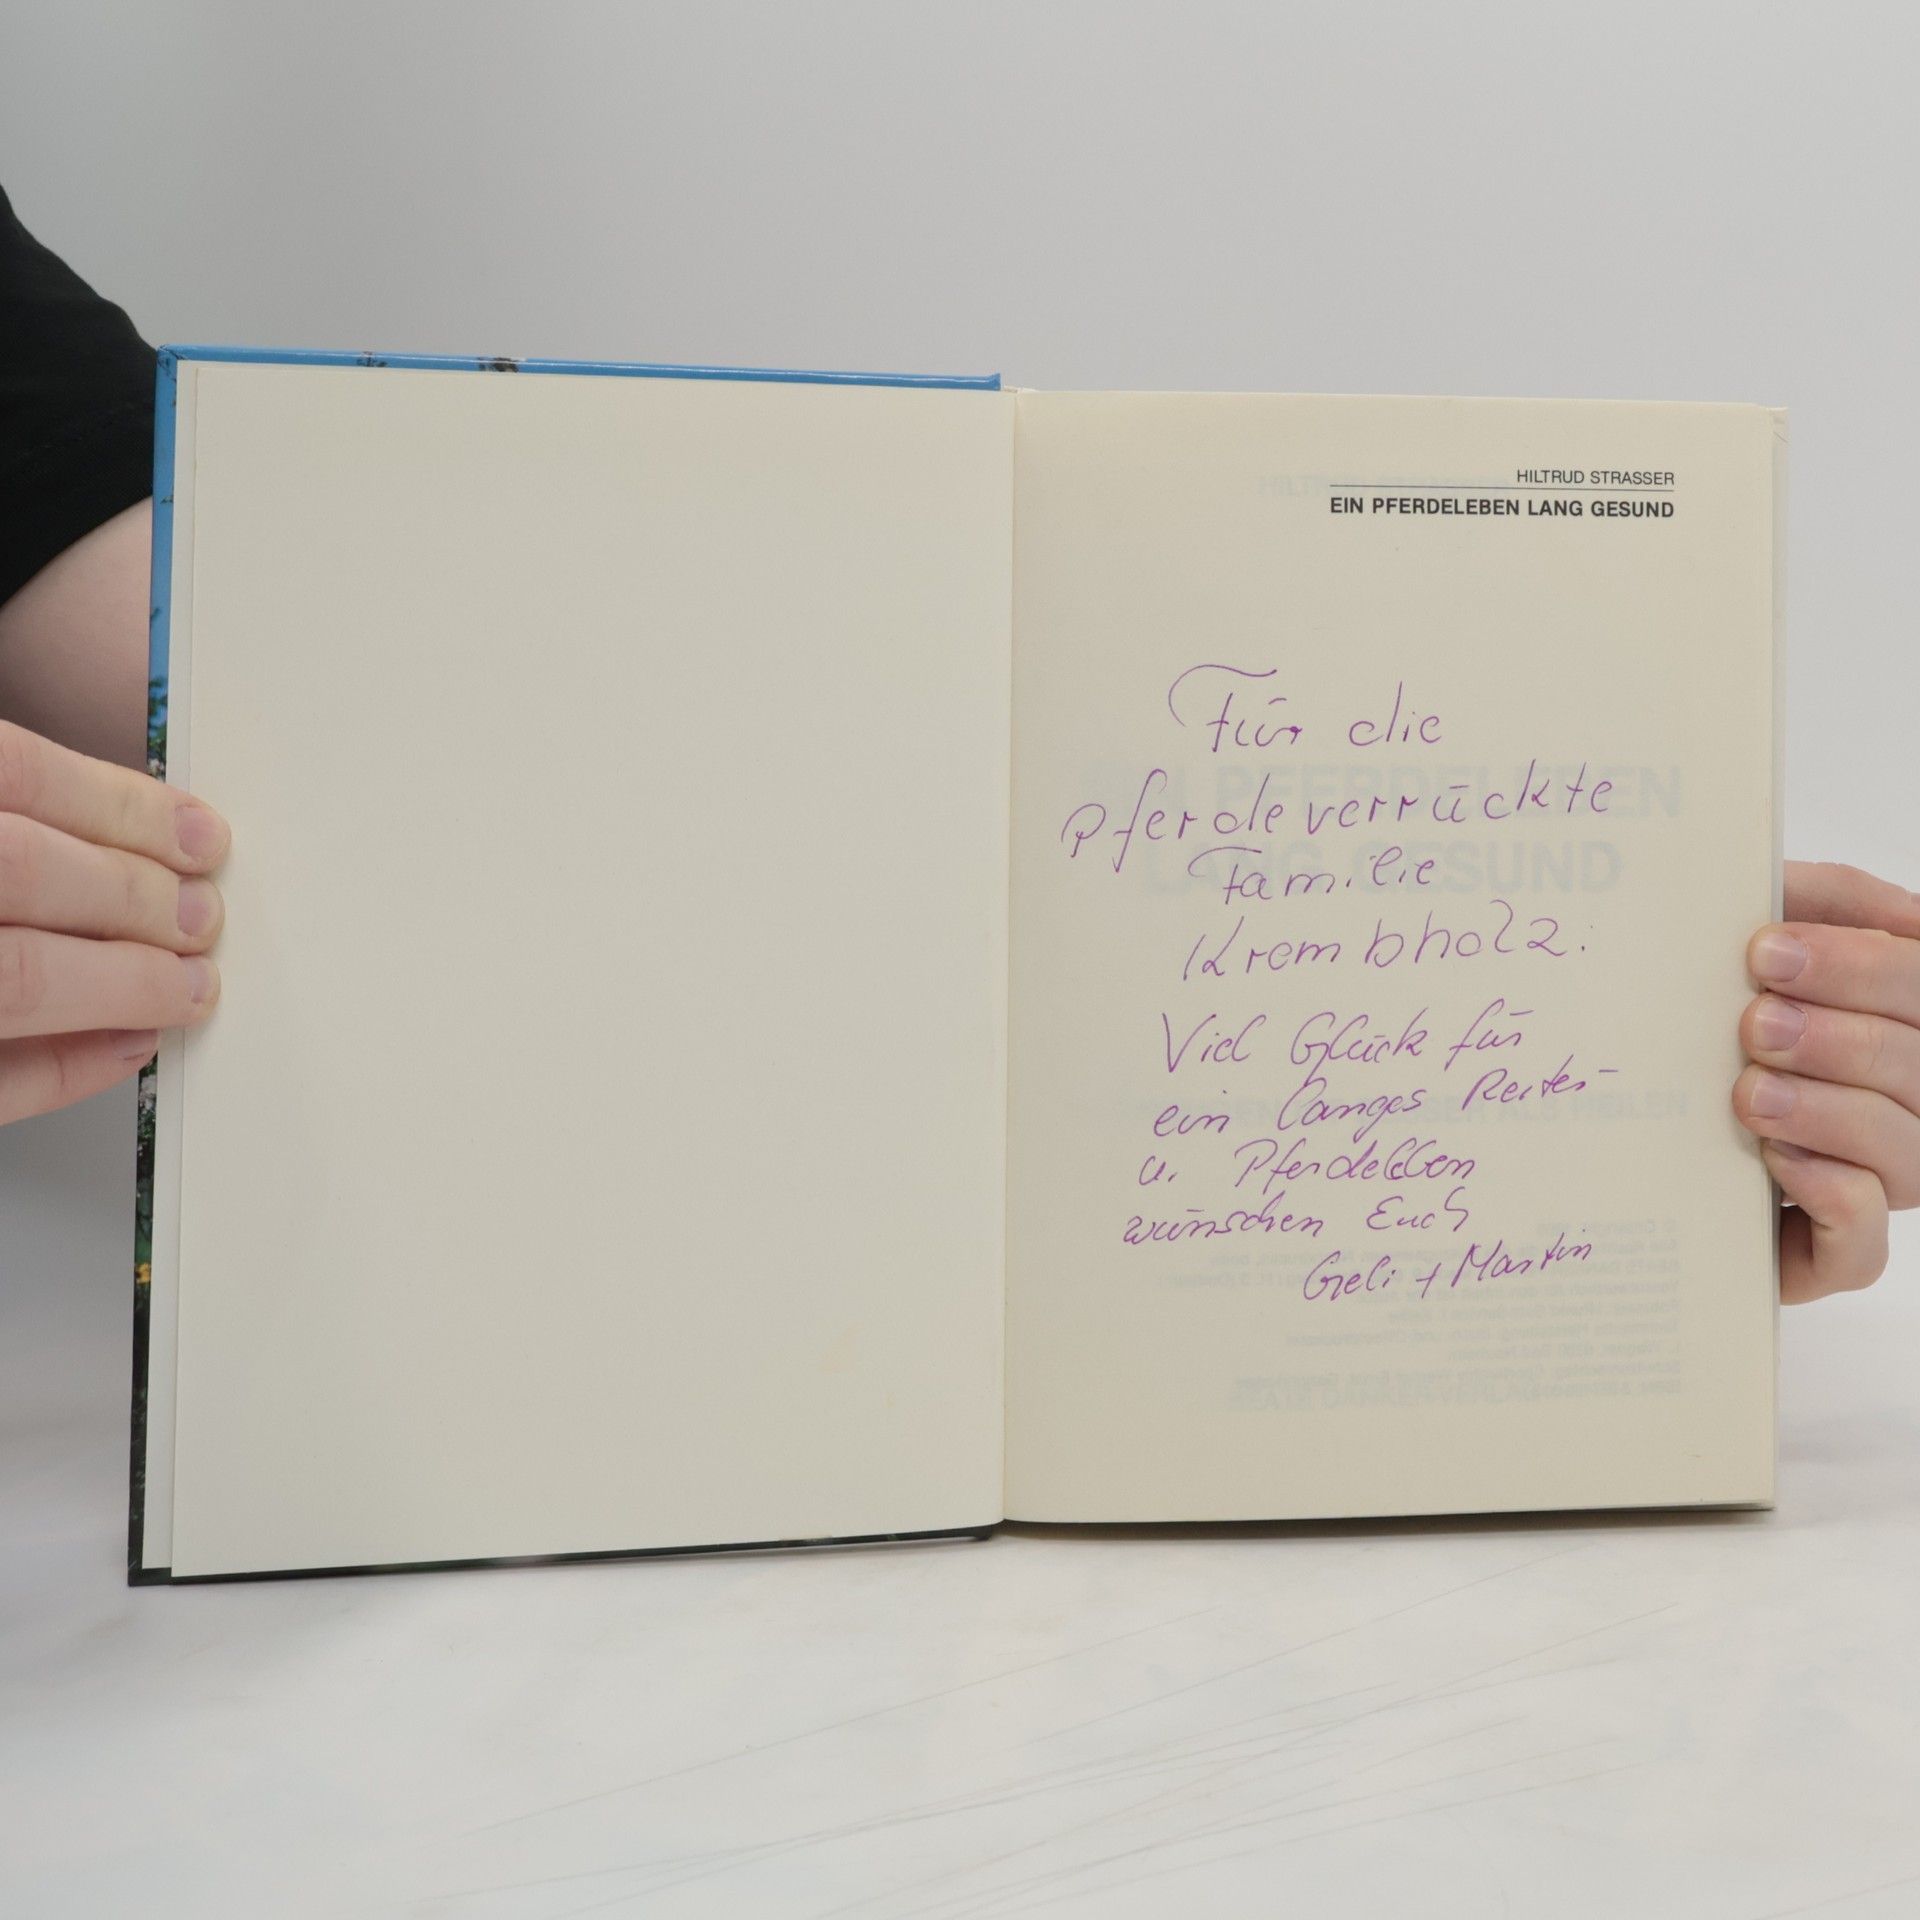 HILTRUD STRASSER
EIN PFERDELEBEN LANG GESUND
Für die
Pferdeverrückte
Familie
Krembholz:
Viel Glück für
ein langes Reiter-
u. Pferdeleben
wünschen Euch
Geli + Martin